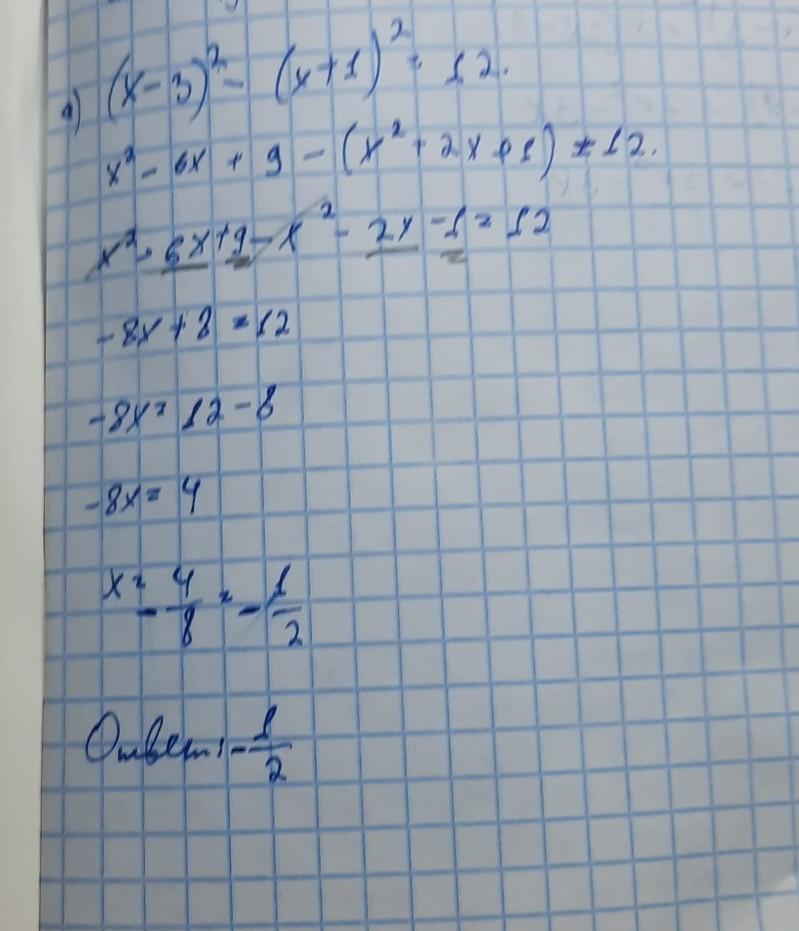 а) (x-3)² - (x+1)² = 12.
x² - 6x + 9 - (x² + 2x + 1) = 12.
x² - 6x + 9 - x² - 2x - 1 = 12
-8x + 8 = 12
-8x = 12 - 8
-8x = 4
x = -4/8 = -1/2
Ответ: -1/2